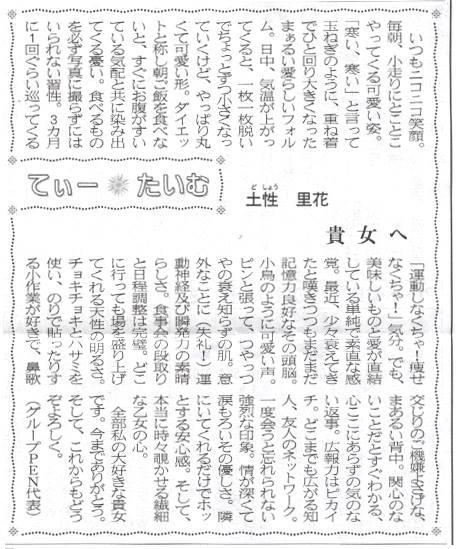 てぃーたいむ
土性　里花
どしょう
貴女へ
いつもニコニコ笑顔。
毎朝、小走りにとことこ
やってくる可愛い姿。
「寒い、寒い」と言って
玉ねぎのように、重ね着
でひと回り大きくなった
まぁるい愛らしいフォル
ム。日中、気温が上がっ
てくると、一枚一枚脱い
でちょっとずつ小さくなっ
ていくけど、やっぱり丸
くて可愛い形。ダイエッ
トと称し朝ご飯を食べな
いと、すぐにお腹がすい
ている気配と共に染み出
てくる憂い。食べるもの
を必ず写真に撮らずには
いられない習性。3カ月
に1回ぐらい巡ってくる
「運動しなくちゃ！痩せ
なくちゃ！」気分。でも、
美味しいものと愛が直結
している単純で素直な感
覚。最近、少々衰えてき
たと嘆きつつもまだまだ
記憶力良好なその頭脳
小鳥のように可愛い声。
ピンと張って、つやっつ
やの衰え知らずの肌。意
外なことに（失礼！）運
動神経及び瞬発力の素晴
らしさ。食事会の段取り
と日程調整は完璧。どこ
に行っても場を盛り上げ
てくれる天性の明るさ。
チョキチョキとハサミを
使い、のりで貼ったりす
る小作業が好きで、鼻歌
交じりのご機嫌よさげな、
まあるい背中。関心のな
いことだとすぐわかる、
心ここにあらずの気のな
い返事。広報力はピカイ
チ。どこまでも広がる知
人、友人のネットワーク。
一度会うと忘れられない
強烈な印象。情が深くて
涙もろいその優しさ。隣
にいてくれるだけでホッ
とする安心感。そして、
本当に時々覗かせる繊細
な乙女の心。
全部私の大好きな貴女
です。今までありがとう。
そして、これからもどう
ぞよろしく。
（グループPEN代表）